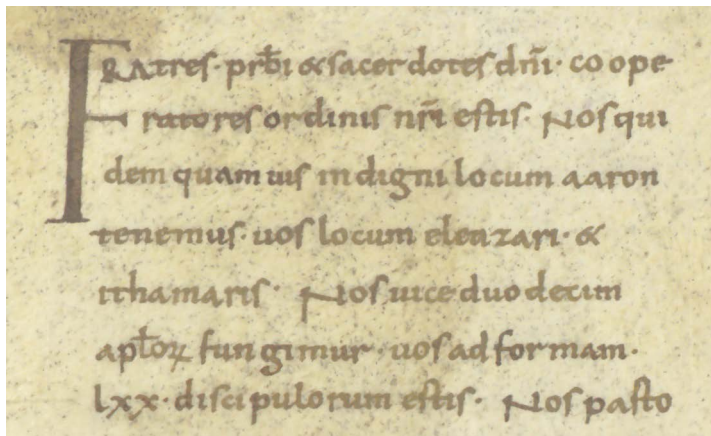 FRAtres· prb̄i &sacerdotes dn̄i· coope
ratores ordinis nr̄i estis· Nos qui
dem quamuis indigni locum aaron
tenemus· uos locum eleazari· &
ithamaris· Nos uice duodecim
apl̄oꝝ fungimur· uos ad formam·
lxx· discipulorum estis· Nos pasto